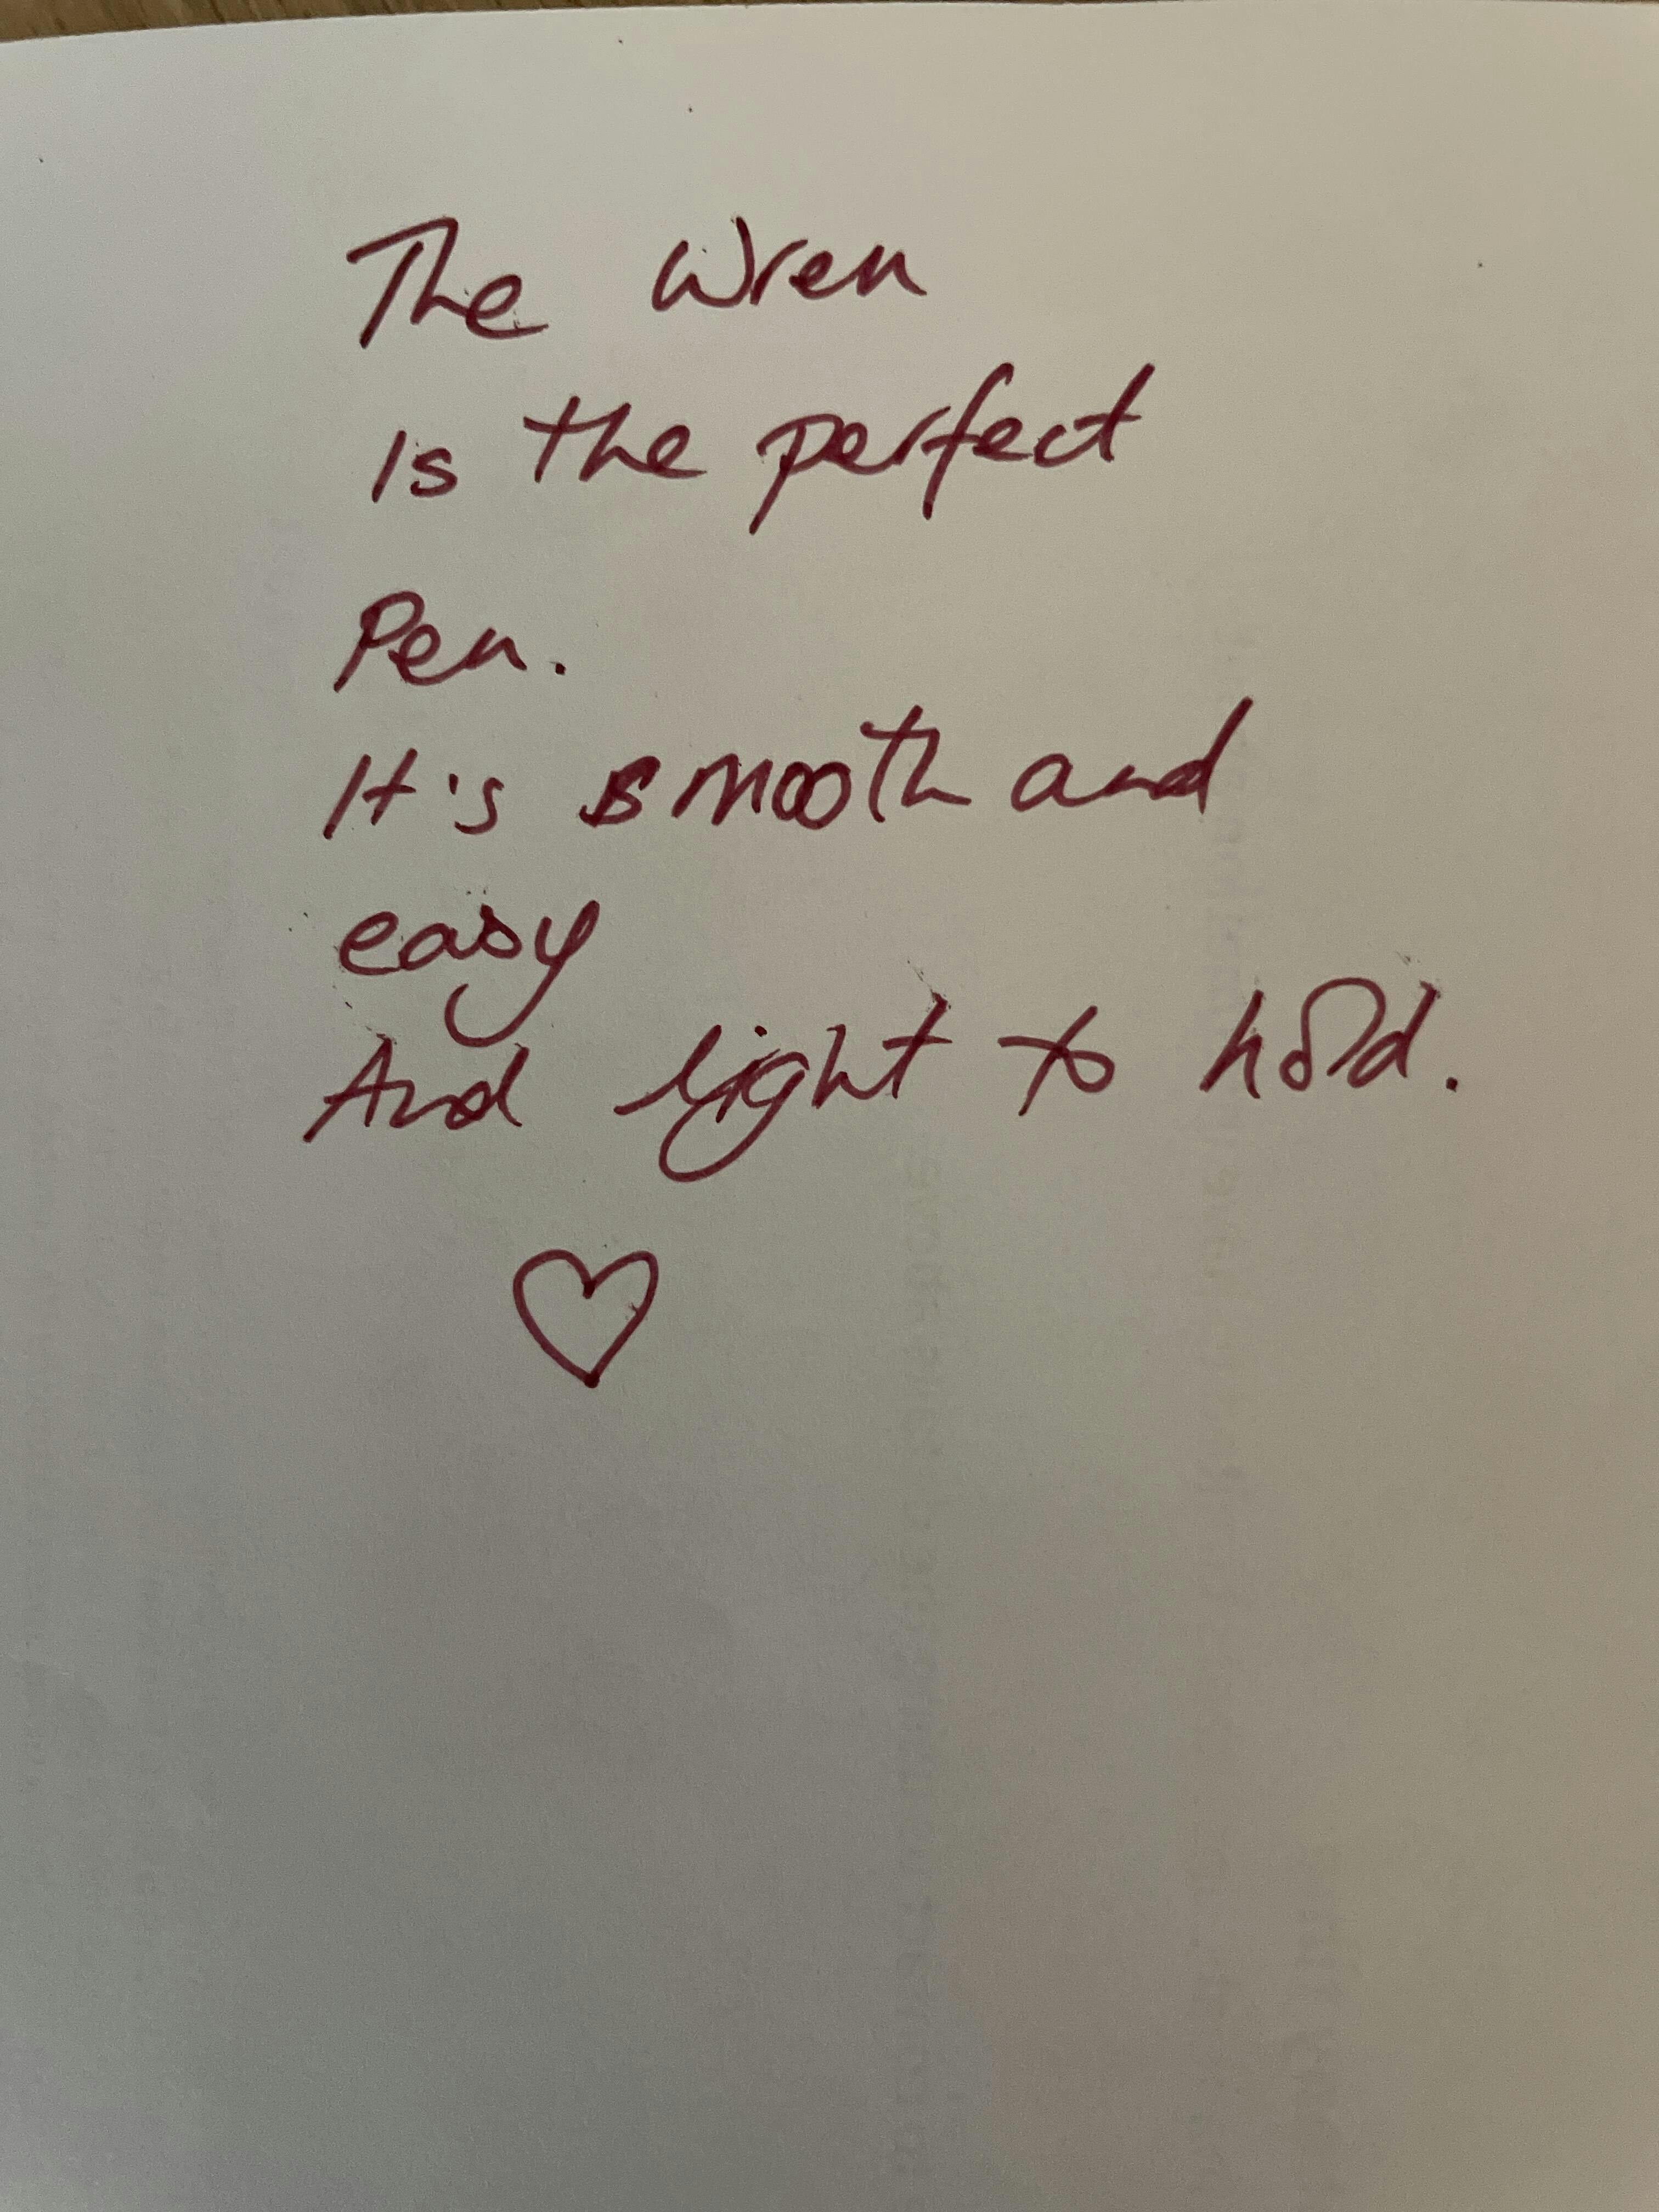 The Wren
Is the perfect
Pen.
It's smooth and
easy
And light to hold.